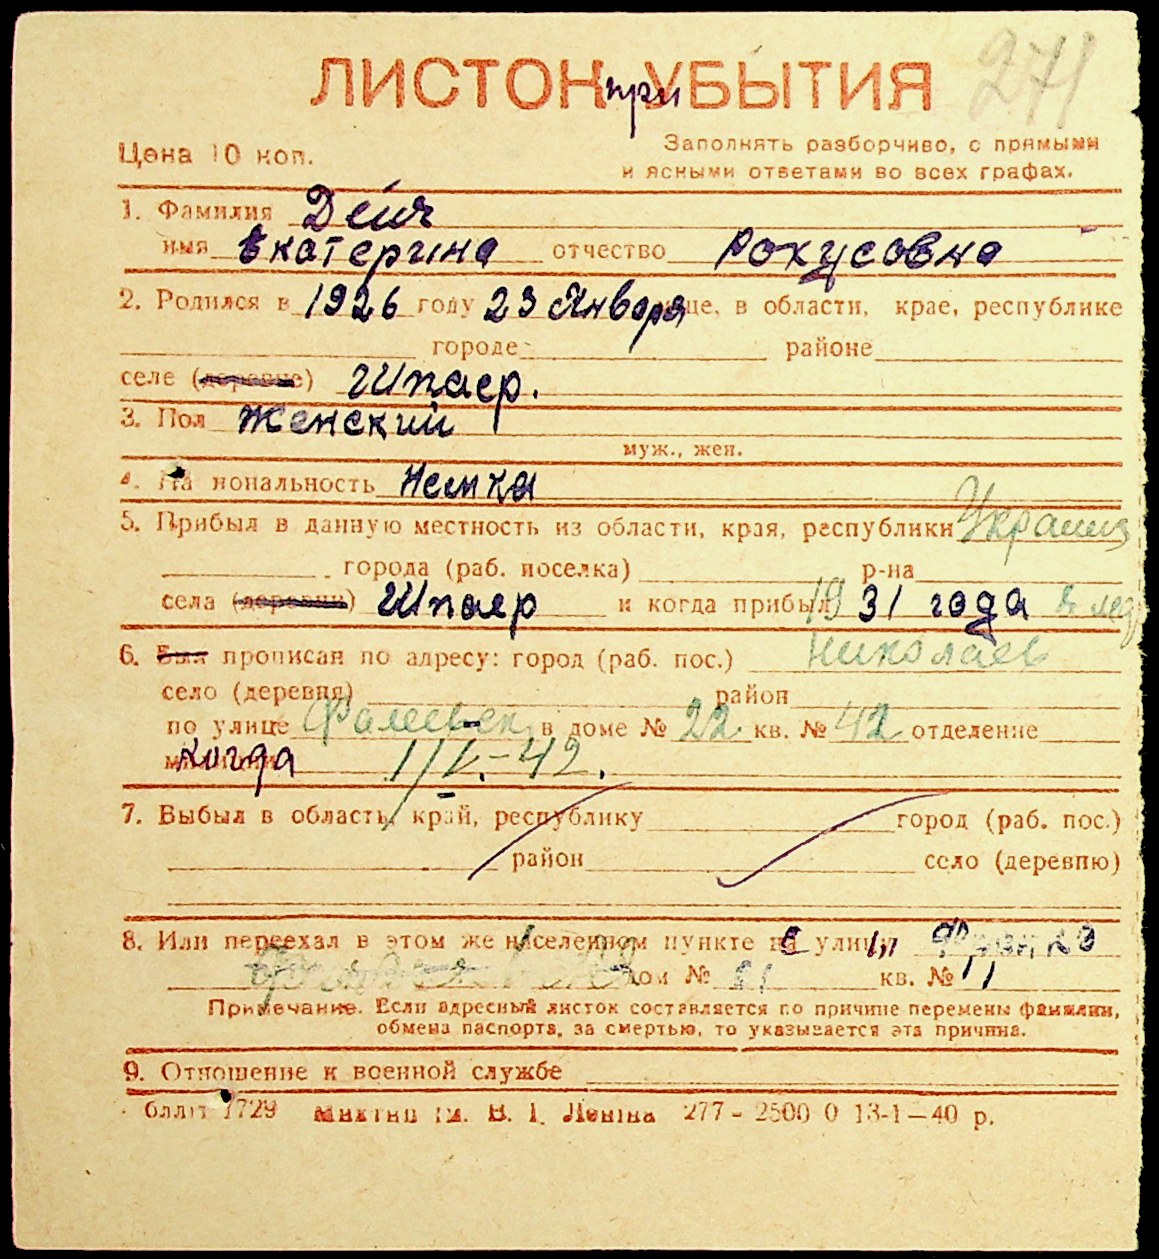 271
ЛИСТОК при УБЫТИЯ
Цена 10 коп.
Заполнять разборчиво, с прямыми
и ясными ответами во всех графах.
1. Фамилия Дейч
имя Екатерина отчество Рохусовна
2. Родился в 1926 году 23 Января це, в области, крае, республике
городе районе
селе (деревне) Шпаер.
3. Пол Женский
муж., жен.
4. На иональность Немка
5. Прибыл в данную местность из области, края, республики Украина
города (раб. поселка) р-на
села (деревни) Шпаер и когда прибыл 1931 года в
6. Был прописан по адресу: город (раб. пос.) Николаев
село (деревня) район
по улице в доме № 22 кв. № 42 отделение
Когда 1/I.-42.
7. Выбыл в область, край, республику город (раб. пос.)
район село (деревню)
8. Или переехал в этом же населенном пункте с улицы Франко
дом № 21 кв. № 11
Примечание. Если адресный листок составляется по причине перемены фамилии,
обмена паспорта, за смертью, то указывается эта причина.
9. Отношение к военной службе
1729 В. І. Леніна 277 - 2500 0 13-1-40 р.